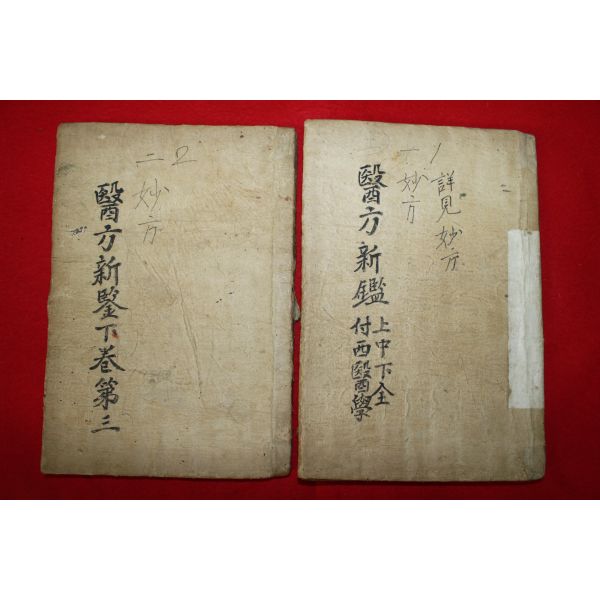 醫方新鑒下卷第三
妙方
二 2
醫方新鑑 上中下全
付西醫學
一妙方
1 詳見妙方